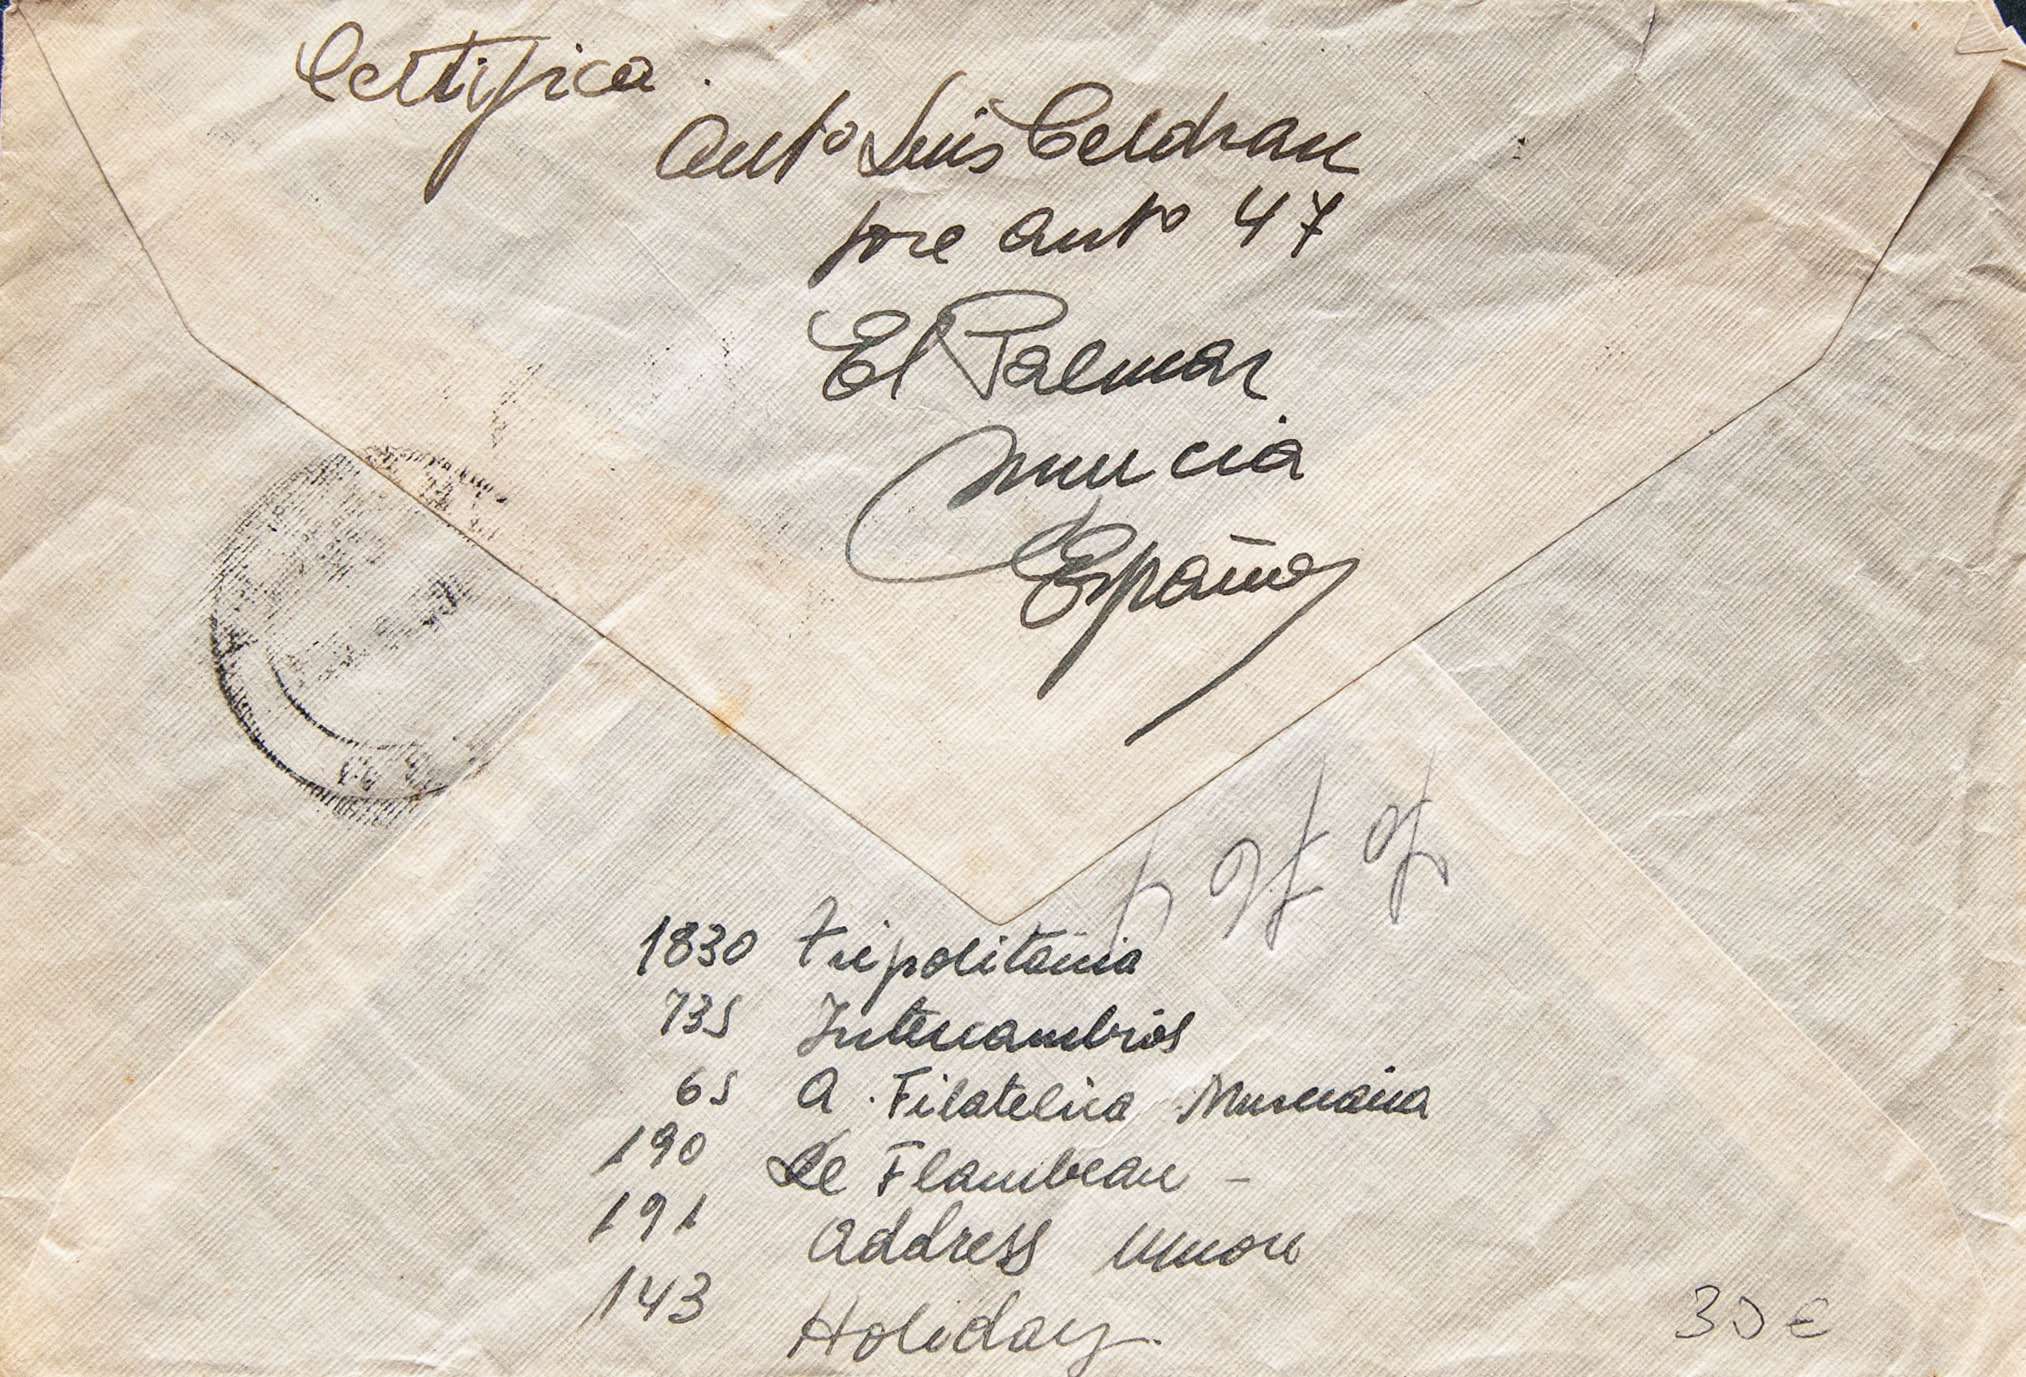 Certifica.
Anto Luis Celdran
Jose Anto 47
El Palmar
Murcia
España
1830 Tripolitania
735 Intercambios
65 A. Filatelica Murciana
190 Le Flambeau -
191 Address Union
143 Holiday.
30 €